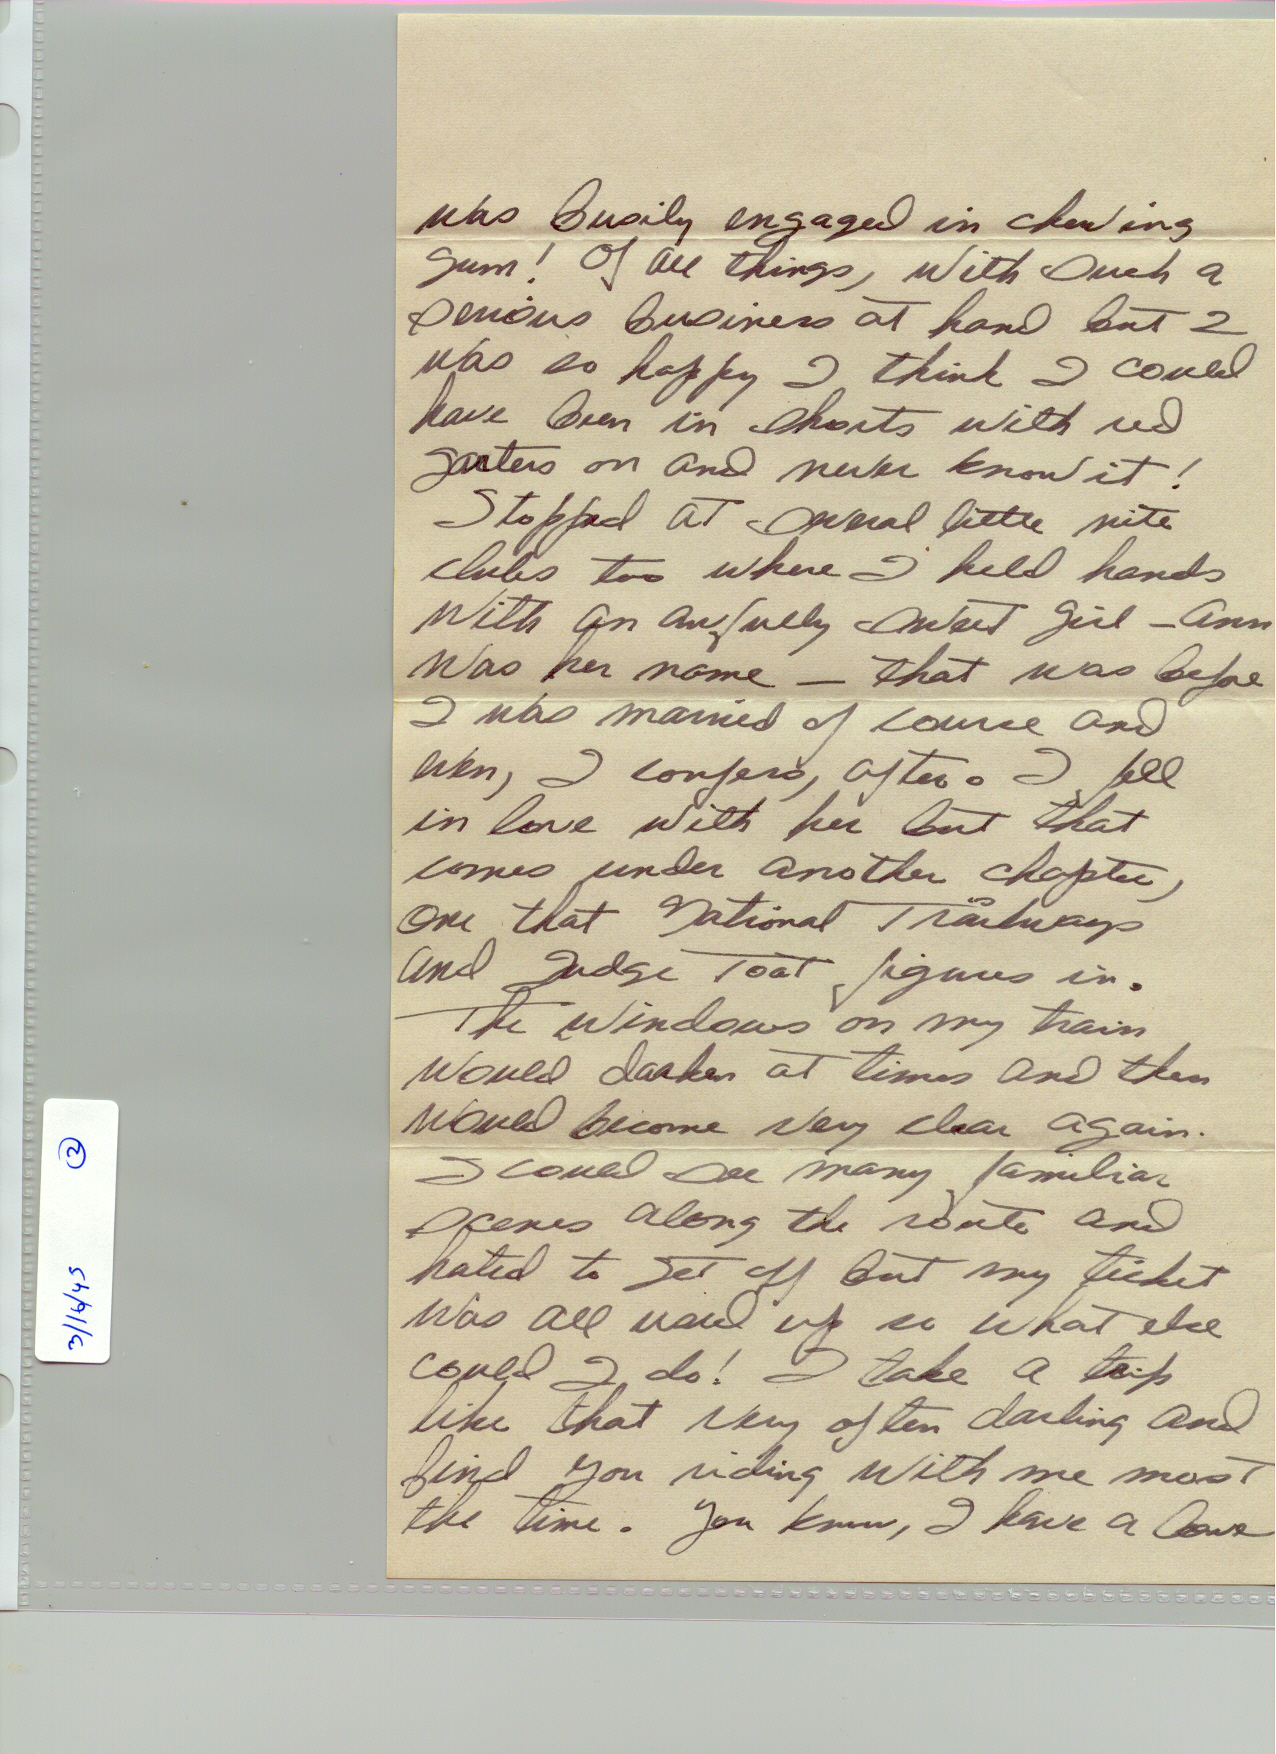 was busily engaged in chewing
gum! Of all things, with such a
serious business at hand but I
was so happy I think I could
have been in shorts with red
garters on and never know it!
Stopped at several little nite
clubs too where I held hands
with an awfully sweet girl - Ann
was her name - that was before
I was married of course and
even, I confess, after. I fell
in love with her but that
comes under another chapter,
one that National Trailways
and Judge Toat figures in.
The windows on my train
would darken at times and then
would become very clear again.
I could see many familiar
scenes along the route and
hated to get off but my ticket
was all used up so what else
could I do! I take a trip
like that very often darling and
find you riding with me most
the time. You know, I have a
3/16/45 2